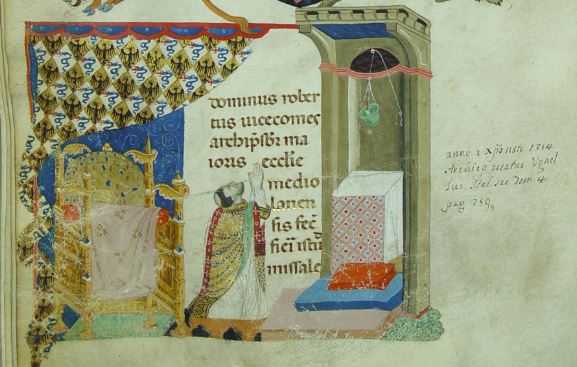 dominus rober
tus vicecomes
archip̄sbr̄ ma
ioris eccelie
medio
lanen
sis fec̄
fieri istud
missale
anno 1354
Archiep creatus Ughel
Ital sac tom 4
pag 259